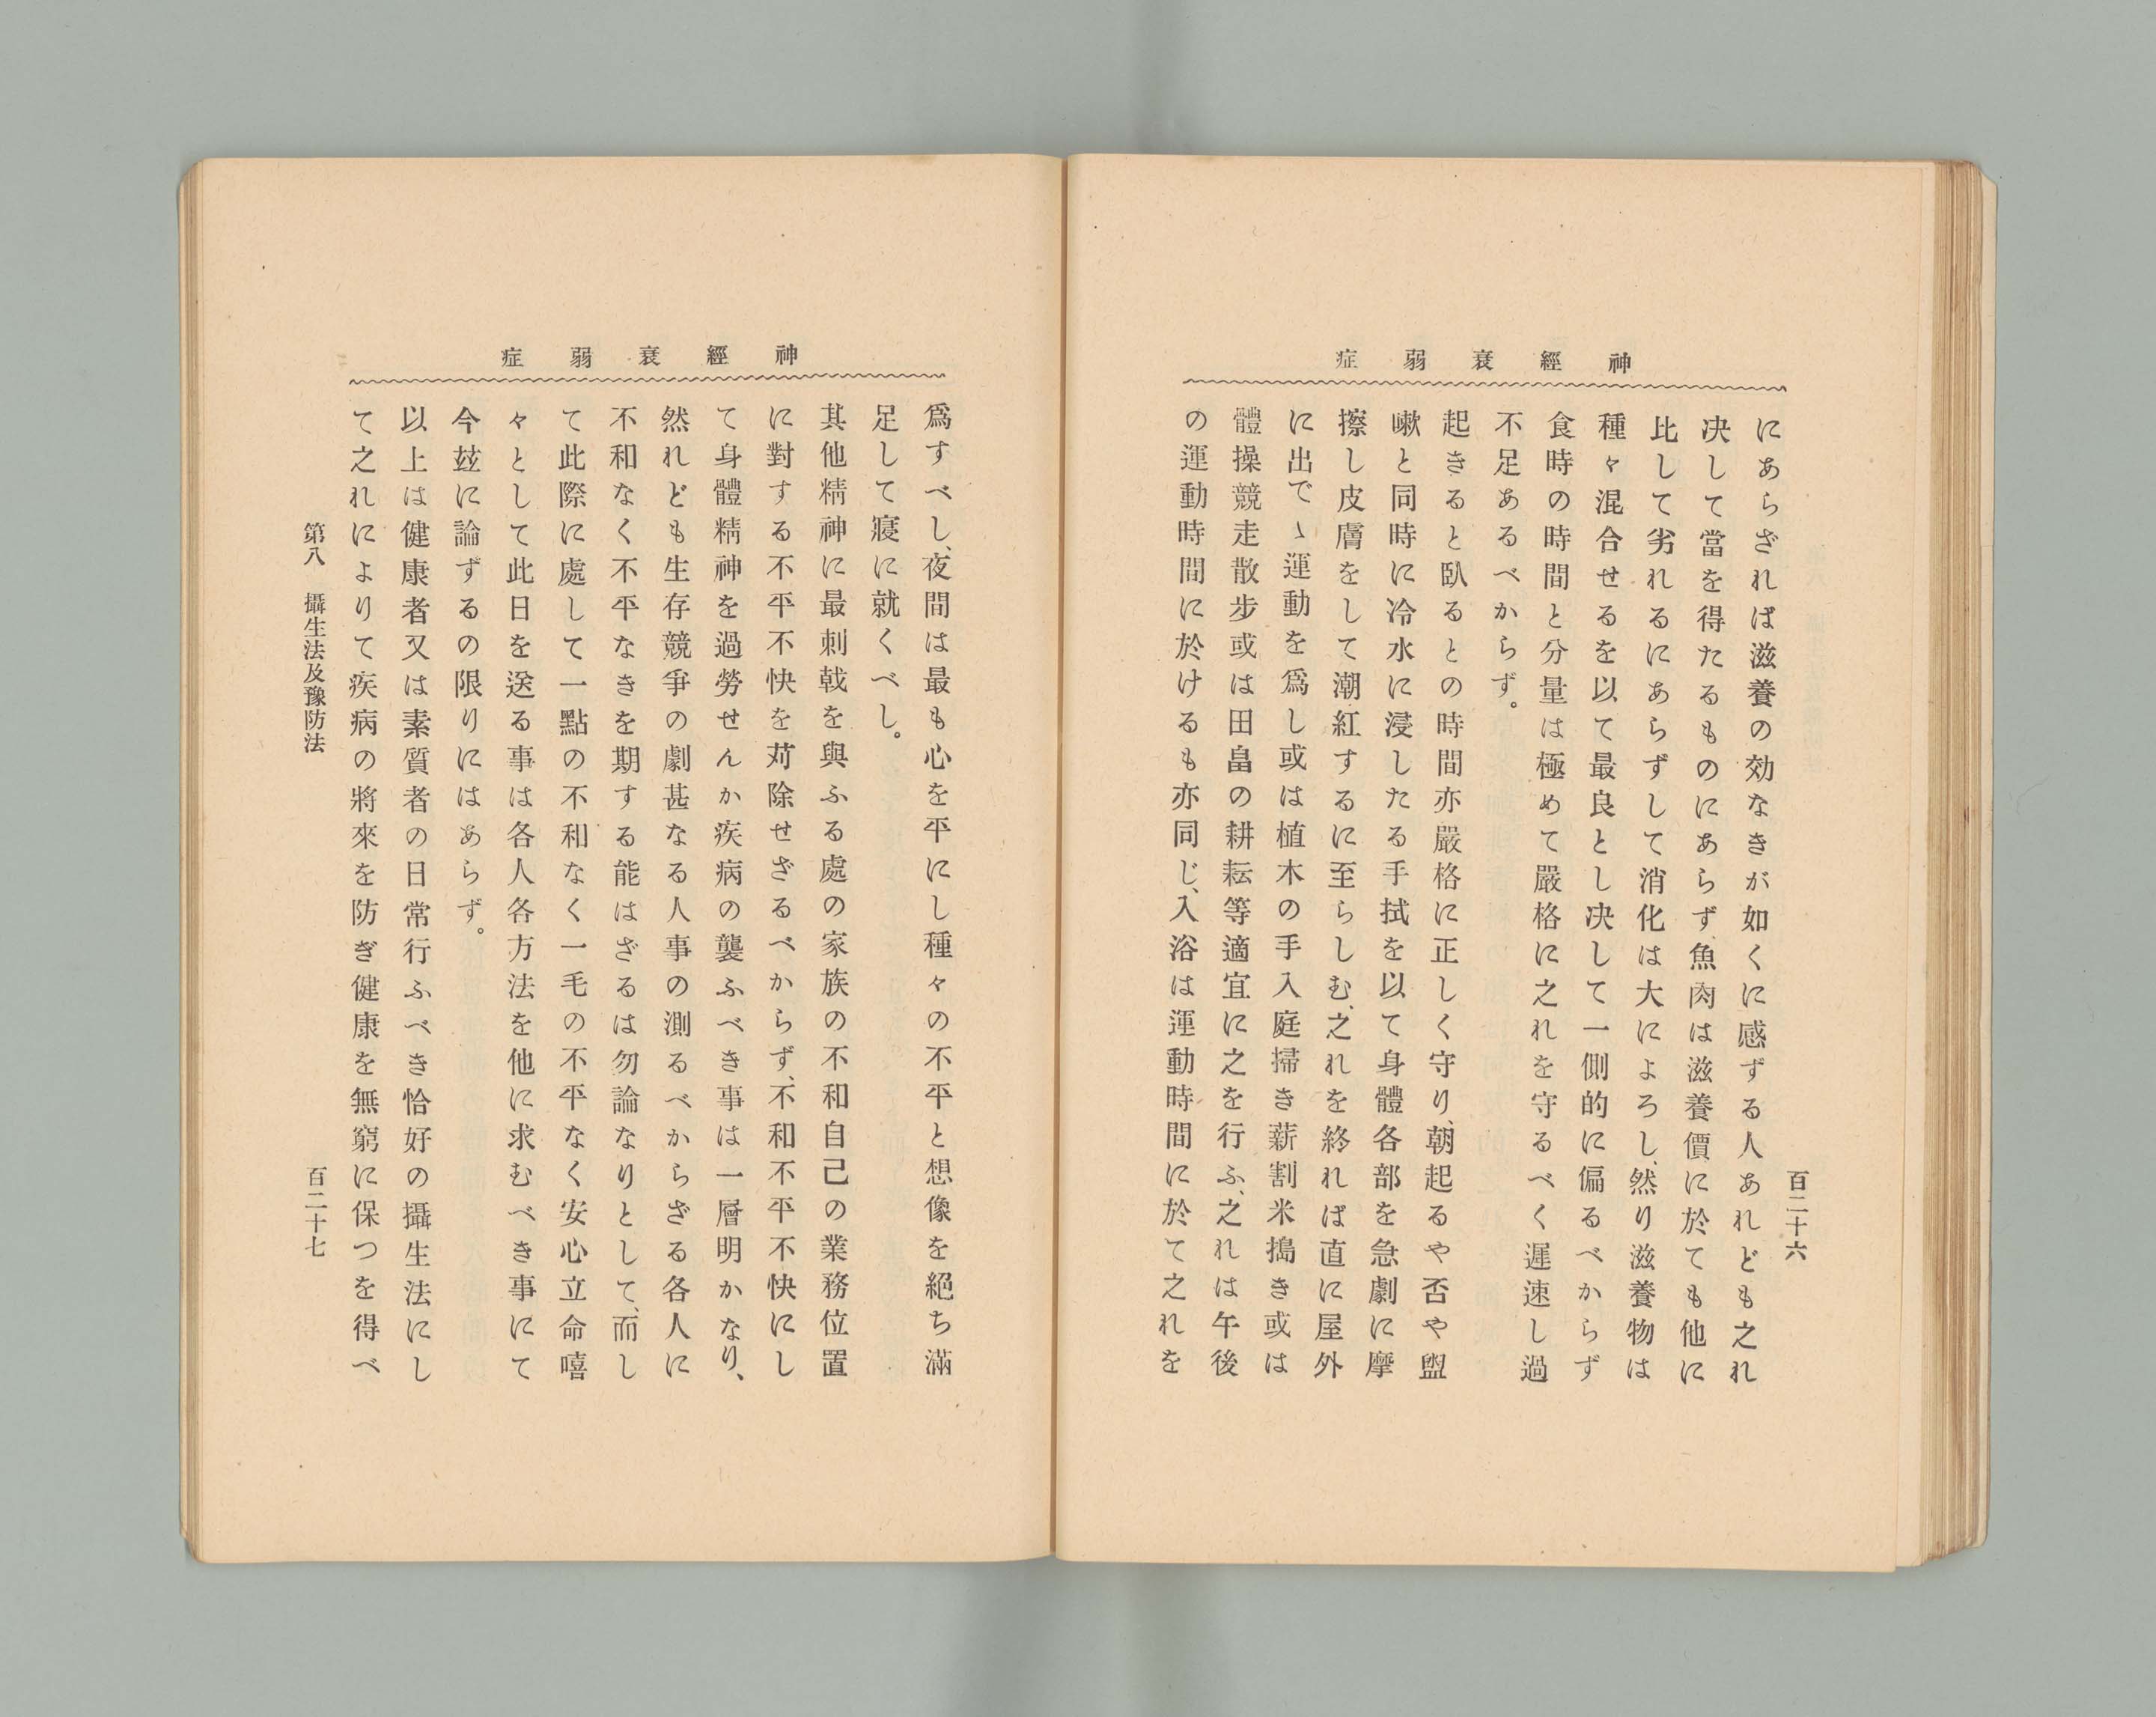 神經衰弱症
百二十六
にあらざれば滋養の効なきが如くに感ずる人あれども之れ
決して當を得たるものにあらず、魚肉は滋養價に於ても他に
比して劣れるにあらずして消化は大によろし、然り滋養物は
種々混合せるを以て最良とし决して一側的に偏るべからず
食時の時間と分量は極めて嚴格に之れを守るべく遲速し過
不足あるべからず。
起きると臥るとの時間亦嚴格に正しく守り、朝起るや否や盥
嗽と同時に冷水に浸したる手拭を以て身體各部を急劇に摩
擦し皮膚をして潮紅するに至らしむ、之れを終れば直に屋外
に出でゝ運動を爲し或は植木の手入庭掃き薪割米搗き或は
體操競走散步或は田畠の耕耘等適宜に之を行ふ、之れは午後
の運動時間に於けるも亦同じ、入浴は運動時間に於て之れを
神經衰弱症
爲すべし、夜間は最も心を平にし種々の不平と想像を絕ち滿
足して寢に就くべし。
其他精神に最刺戟を與ふる處の家族の不和自己の業務位置
に對する不平不快を苅除せざるべからず、不和不平不快にし
て身體精神を過勞せんか疾病の襲ふべき事は一層明かなり、
然れども生存競爭の劇甚なる人事の測るべからざる各人に
不和なく不平なきを期する能はざるは勿論なりとして、而し
て此際に處して一點の不和なく一毛の不平なく安心立命嘻
々として此日を送る事は各人各方法を他に求むべき事にて
今玆に論ずるの限りにはあらず。
以上は健康者又は素質者の日常行ふべき恰好の攝生法にし
て之れによりて疾病の將來を防ぎ健康を無窮に保つを得べ
第八　攝生法及豫防法
百二十七